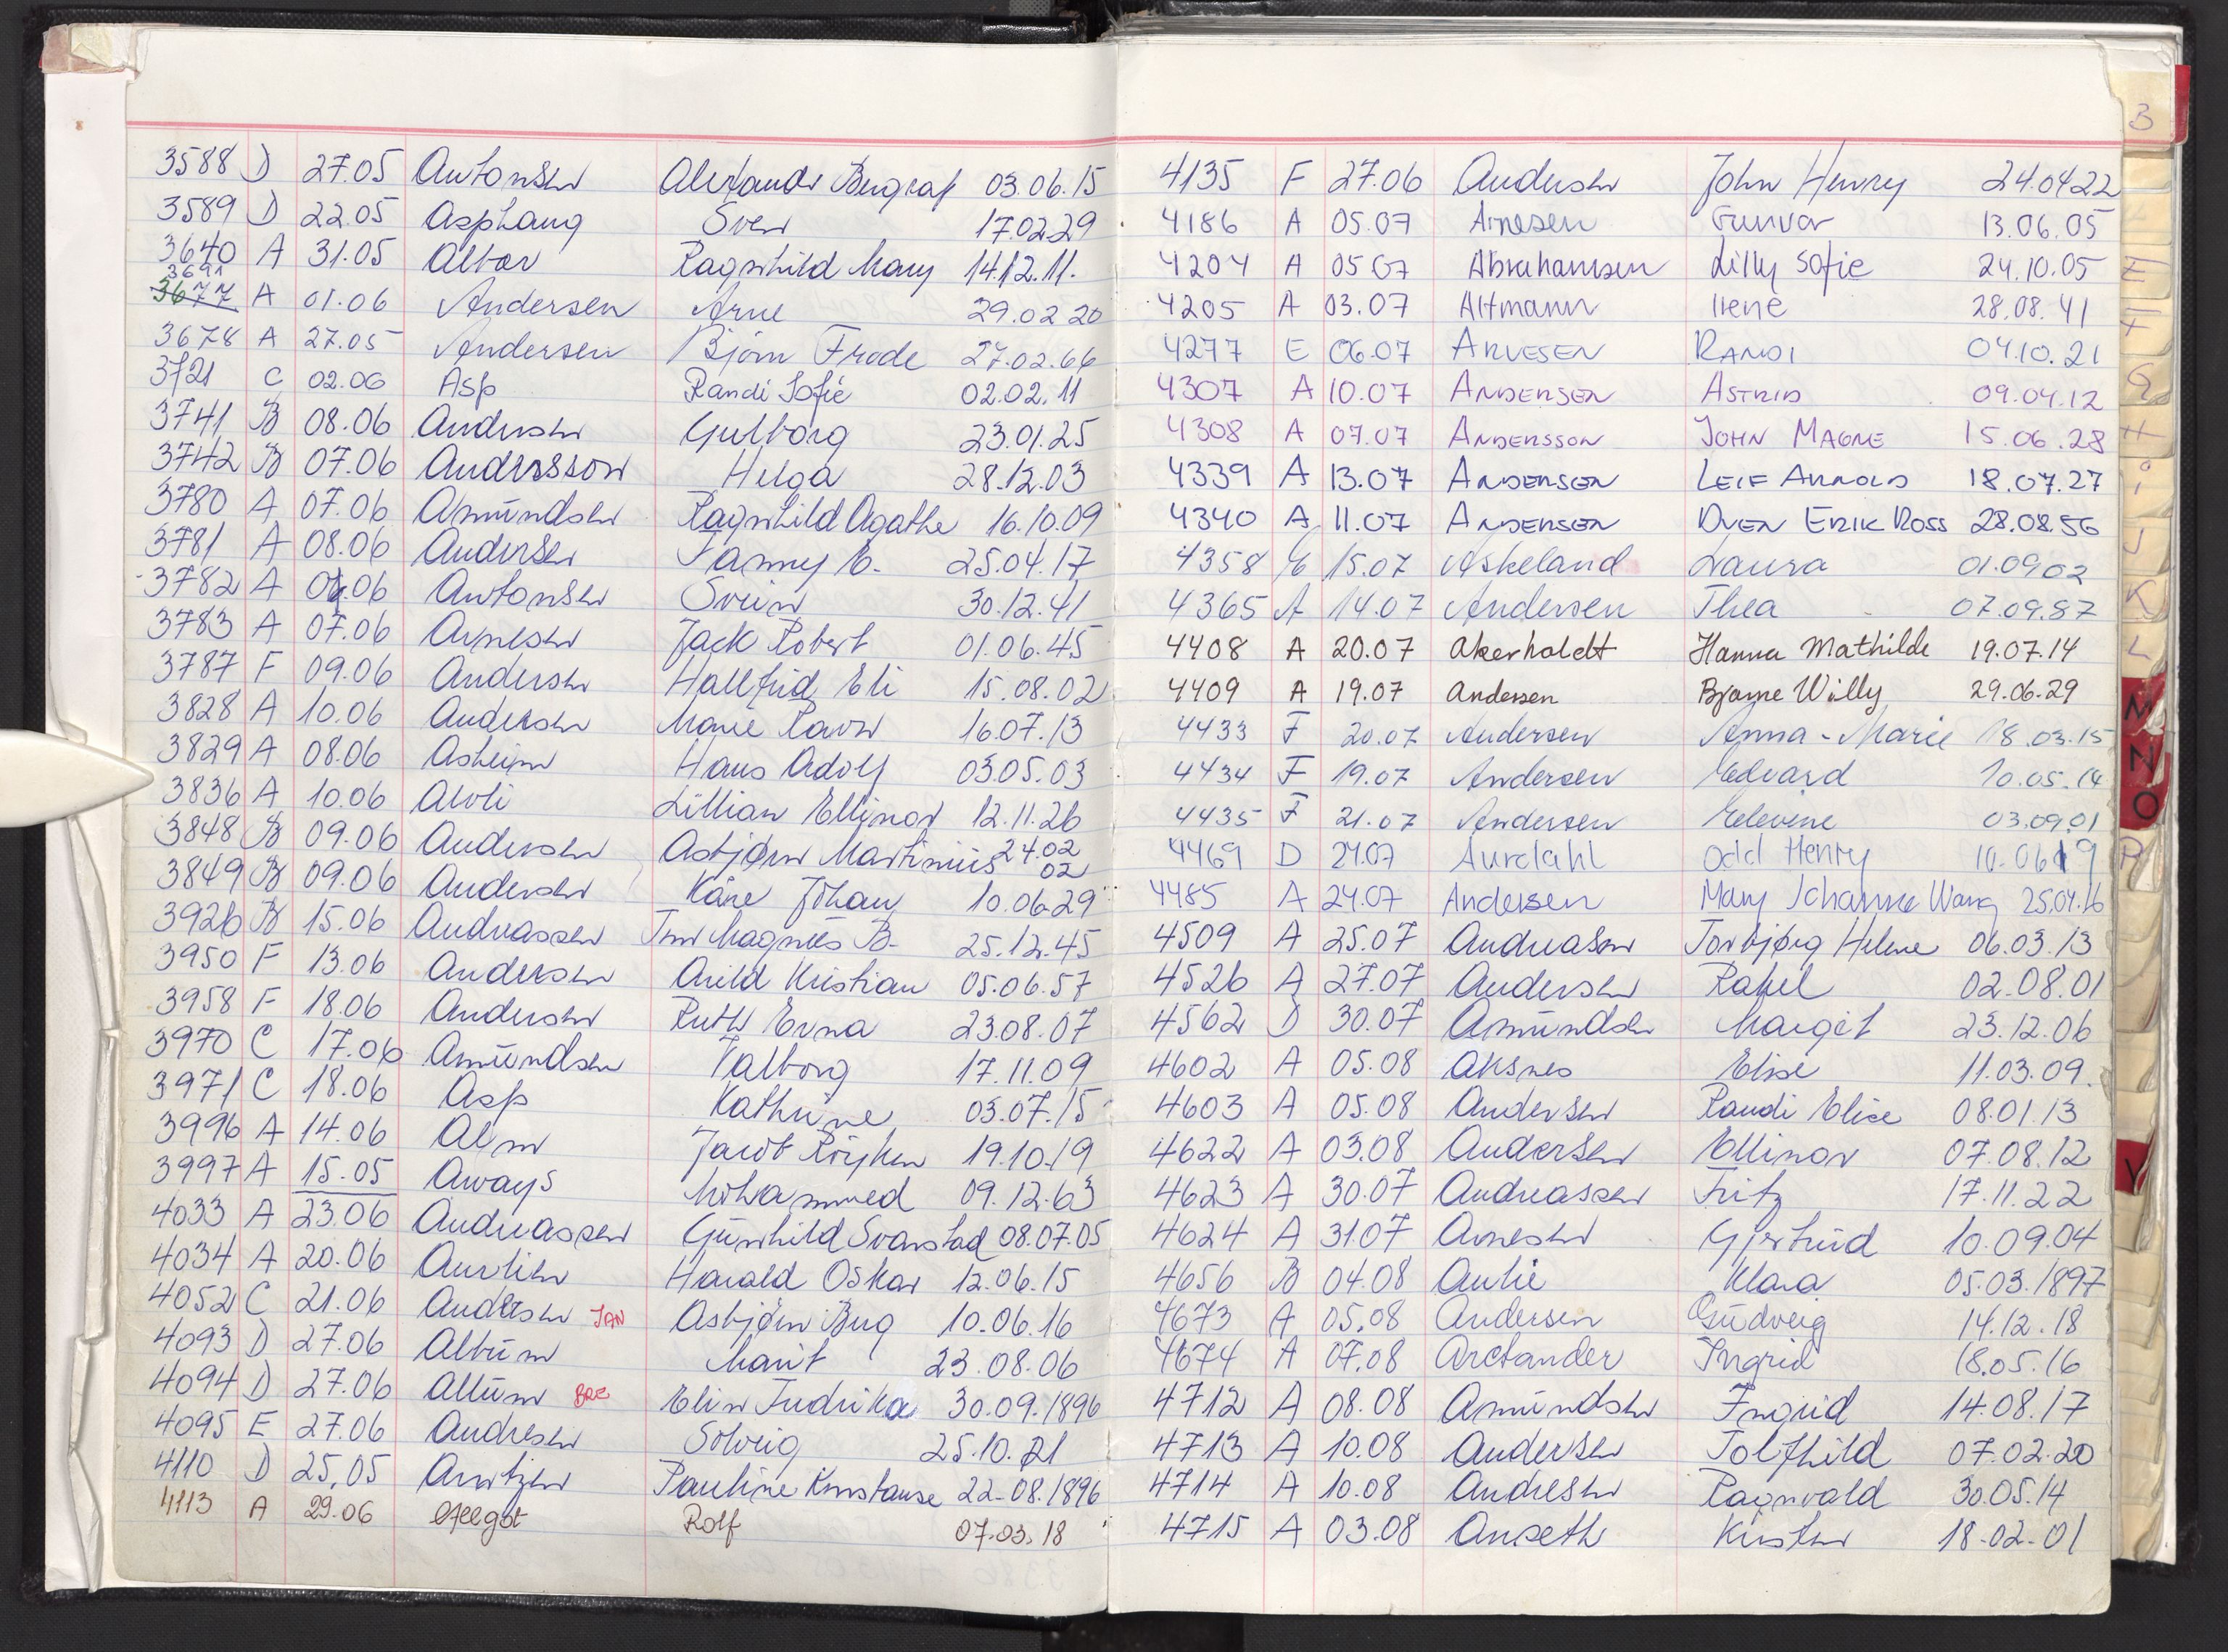 3588 D 27.05 Antonsen Alexander Bergraf 03.06.15
3589 D 22.05 Asphaug Sven 17.02.29
3640 A 31.05 Alvær Ragnhild Mary 14.12.11.
3691
3677 A 01.06 Andersen Arne 29.02.20
3678 A 27.05 Andersen Bjørn Frode 27.02.66
3721 C 02.06 Asp Randi Sofie 02.02.11
3741 B 08.06 Andersen Gulborg 23.01.25
3742 B 07.06 Anderssson Helga 28.12.03
3780 A 07.06 Amundsen Ragnhild Agathe 16.10.09
3781 A 08.06 Andersen Fanny E. 25.04.17
3782 A 06 Antonsen Svein 30.12.41
3783 A 07.06 Arnesen Jack Robert 01.06.45
3787 F 09.06 Andersen Hallfrid Eli 15.08.02
3828 A 10.06 Andersen Marie 16.07.13
3829 A 08.06 Asheim Hans Adolf 03.05.03
3836 A 10.06 Alvoli Lillian Ellinor 12.11.26
3848 B 09.06 Andersen Asbjørn Martinius 24.02
02
3849 B 09.06 Andersen Kåre Johan 10.06.29
3926 B 15.06 Andreassen Magnus B. 25.12.45
3950 F 13.06 Andersen Arild Kristian 05.06.57
3958 F 18.06 Andersen Ruth Erna 23.08.07
3970 C 17.06 Amundsen Valborg 17.11.09
3971 C 18.06 Asp Kathrine 03.07.15
3996 A 14.06 Alm Jacob Röyken 19.10.19
3997 A 15.05 Aways Mohammed 09.12.63
4033 A 23.06 Andreassen Gunhild Svanstad 08.07.05
4034 A 20.06 Aurlien Harald Oskar 12.06.15
4052 C 21.06 Andersen JAN Asbjørn Berg 10.06.16
4093 D 27.06 Album Marit 23.08.06
4094 D 27.06 Allum BRE Elin Fredrika 30.09.1896
4095 E 27.06 Andresen Solveig 25.10.21
4110 D 25.05 Arntzen Pauline Konstanse 22.08.1896
4113 A 29.06 Rolf 07.03.18
3
4135 F 27.06 Andersen John Henry 24.04.22
4186 A 05.07 Arnesen Gunvor 13.06.05
4204 A 05 07 Abrahamsen Lilly Sofie 24.10.05
4205 A 03.07 Altmann Irene 28.08.41
4277 E 06.07 ARVESEN RANDI 04.10.21
4307 A 10.07 ANDERSEN ASTRID 09.04.12
4308 A 07.07 ANDERSSON JOHN MAGNE 15.06.28
4339 A 13.07 ANDERSEN LEIF ARNOLD 18.07.27
4340 A 11.07 ANDERSEN SVEN ERIK ROSS 28.08.56
4358 E 15.07 Askeland Laura 01.09 02
4365 A 14.07 Andersen Thea 07.09.87
4408 A 20.07 Akerholdt Hanna Mathilde 19.07.14
4409 A 19.07 Andersen Bjarne Willy 29.06.29
4433 F 20.07 Andersen Anna-Marie 18.03.15
4434 F 19.07 Andersen Edvard 10.05.14
4435 F 21.07 Andersen Elevine 03.09.01
4469 D 24.07 Aurdahl Odd Henry 10.06.19
4485 A 24.07 Andersen Mary Johanne Wang 25.04.16
4509 A 25.07 Andreasen Torbjørg Helene 06.03.13
4526 A 27.07 Andersen Rakel 02.08.01
4562 D 30.07 Amundsen Margit 23.12.06
4602 A 05.08 Aksnes Elise 11.03.09.
4603 A 05.08 Andersen Randi Elise 08.01.13
4622 A 03.08 Andersen Ellinor 07.08.12
4623 A 30.07 Andreassen Fritz 17.11.22
4624 A 31.07 Arnesen Gjertrud 10.09.04
4656 B 04.08 Aulie Klara 05.03.1897
4673 A 05.08 Andersen Gudveig 14.12.18
4674 A 07.08 Arctander Ingrid 18.05.16
4712 A 08.08 Amundsen Ingrid 14.08.17
4713 A 10.08 Andersen Tolfhild 07.02.20
4714 A 10.08 Andresen Ragnvald 30.05.14
4715 A 03.08 Anseth Kirsten 18.02.01
E
F
G
H
i
J
K
L
M
N
O
P
V